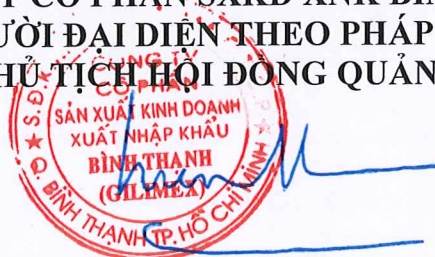 CỔ PHẦN SXKD XNK BÌN
ƯỜI ĐẠI DIỆN THEO PHÁP
HỦ TỊCH HỘI ĐỒNG QUẢN
S.Đ.K
CÔNG TY
CỔ PHẦN
SẢN XUẤT KINH DOANH
XUẤT NHẬP KHẨU
BÌNH THẠNH
(GILIMEX)
Q. BÌNH THẠNH TP. HỒ CHÍ MINH